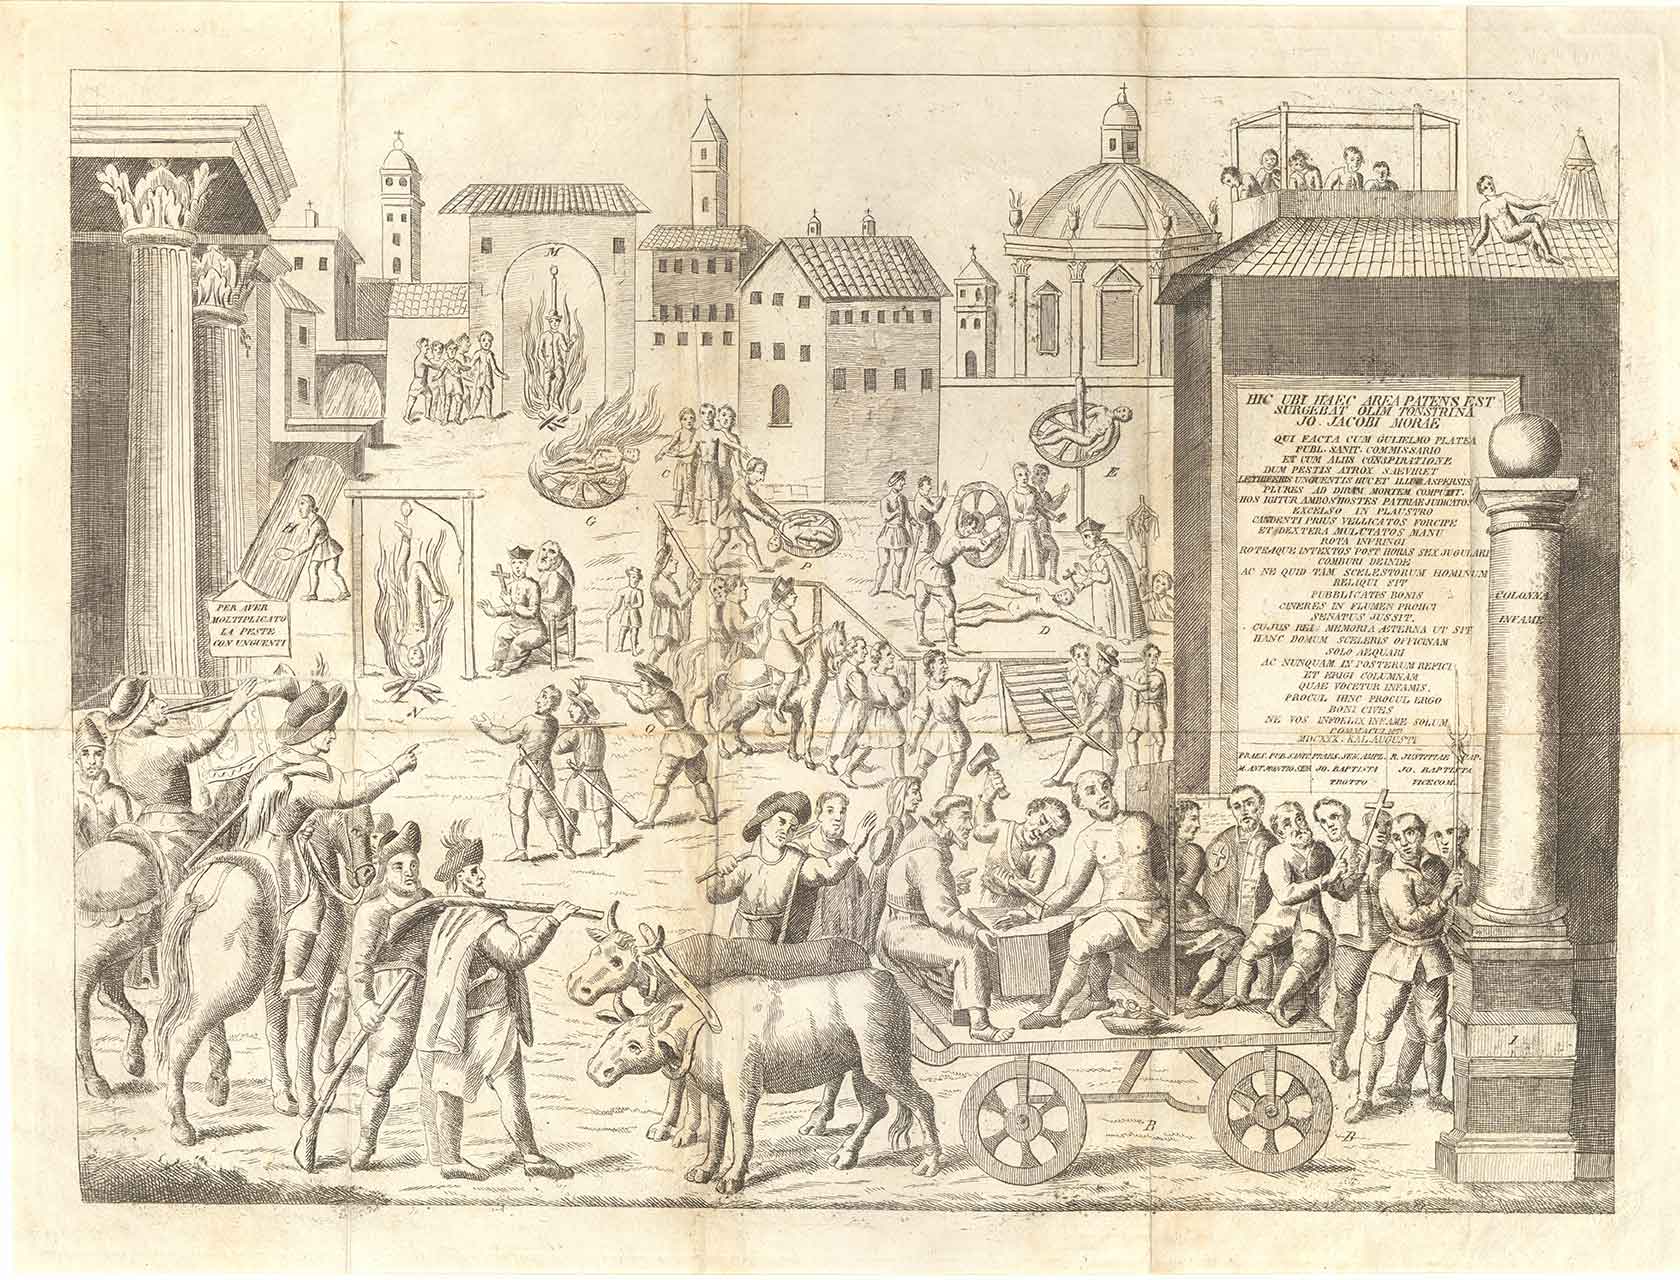 M
C
G
P
E
H
PER AVER
MOLTIPLICATO
LA PESTE
CON UNGUENTI
D
N
O
HIC UBI HAEC AREA PATENS EST
SURGEBAT OLIM TONSTRINA
JO. JACOBI MORAE
QUI FACTA CUM GULIELMO PLATEA
PUBL. SANIT. COMMISSARIO
ET CUM ALIIS CONSPIRATIONE
DUM PESTIS ATROX SAEVIRET
LETHIFERIS UNGUENTIS HUC ET ILLUC ASPERSIS
PLURES AD DIRAM MORTEM COMPULIT.
HOS IGITUR AMBOS HOSTES PATRIAE JUDICATOS
EXCELSO IN PLAUSTRO
CANDENTI PRIUS VELLICATOS FORCIPE
ET DEXTERA MULCTATOS MANU
ROTA INFRINGI
ROTEAQUE INTEXTOS POST HORAS SEX JUGULARI
COMBURI DEINDE
AC NE QUID TAM SCELESTORUM HOMINUM
RELIQUI SIT
PUBBLICATIS BONIS
CINERES IN FLUMEN PROJICI
SENATUS JUSSIT.
CUJUS REI MEMORIA AETERNA UT SIT
HANC DOMUM SCELERIS OFFICINAM
SOLO AEQUARI
AC NUNQUAM IN POSTERUM REFICI
ET ERIGI COLUMNAM
QUAE VOCETUR INFAMIS.
PROCUL HINC PROCUL ERGO
BONI CIVES
NE VOS INFOELIX INFAME SOLUM
COMMACULET
MDCXXX. KAL. AUGUSTI
JO. BAPTISTA
TROTTO
JO. BAPTISTA
VICECOM.
COLONNA
INFAME
I
B
B